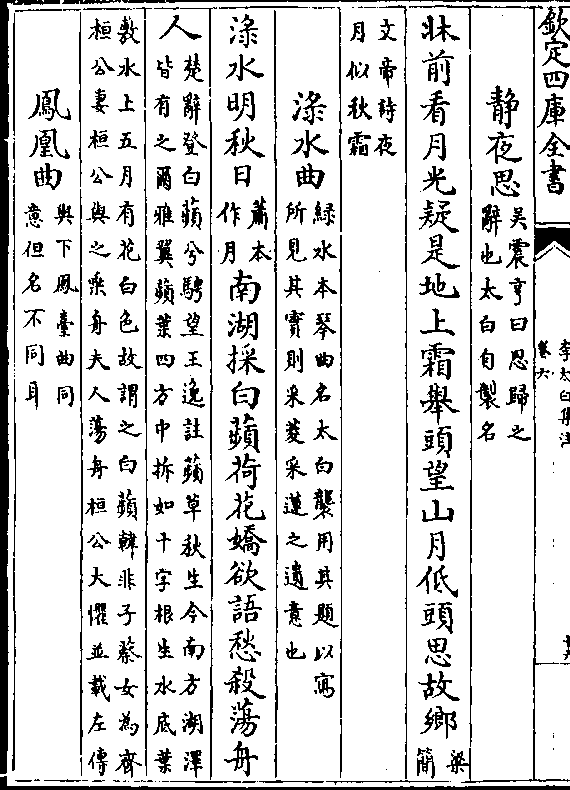 欽定四庫全書
李太白集注
卷六
靜夜思
吳震亨曰思歸之
辭也太白自製名
牀前看月光疑是地上霜舉頭望山月低頭思故鄉
梁
簡
文帝詩夜
月似秋霜
淥水曲
綠水本琴曲名太白襲用其題以寫
所見其實則采菱采蓮之遺意也
淥水明秋日
蕭本
作月
南湖採白蘋荷花嬌欲語愁殺蕩舟
人
楚辭登白蘋兮騁望王逸註蘋草秋生今南方湖澤
皆有之爾雅翼蘋葉四方中拆如十字根生水底葉
敷水上五月有花白色故謂之白蘋韓非子蔡女為齊
桓公妻桓公與之乘舟夫人蕩舟桓公大懼並載左傳
鳳凰曲
與下鳳臺曲同
意但名不同耳